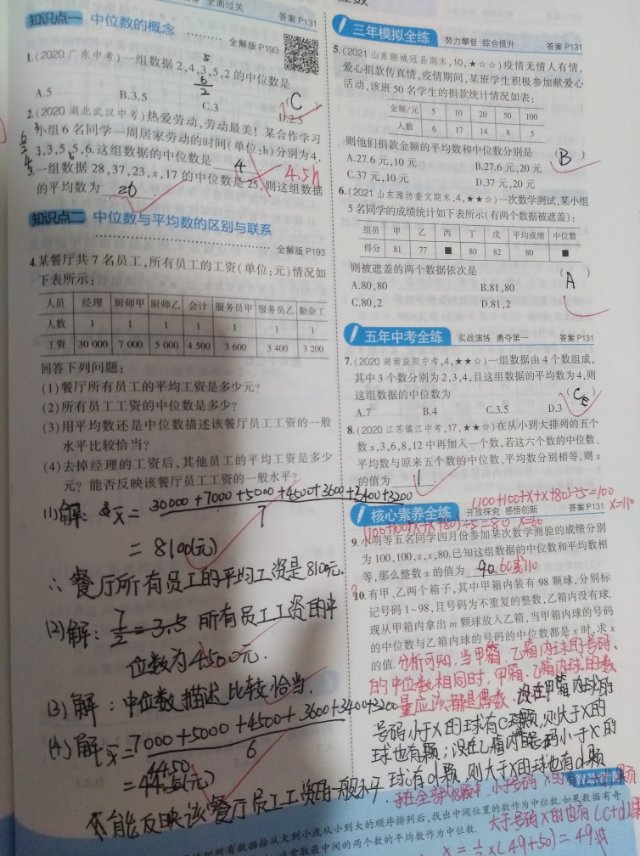 知识点一 中位数的概念
答案 P131
全解版 P193
1.(2020 广东中考)一组数据 2,4,3,5,2 的中位数是
C
A.5 B.3.5 C.3 D.2.5
2.(2020 湖北武汉中考)热爱劳动,劳动最美!某合作学习
小组 6 名同学一周居家劳动的时间(单位:h)分别为 4,
3,3,5,5,6.这组数据的中位数是 4 4.5h
一组数据 28,37,23,x,17 的中位数是 25,则这组数据
的平均数为 26
知识点二 中位数与平均数的区别与联系
全解版 P193
4.某餐厅共 7 名员工,所有员工的工资(单位:元)情况如
下表所示:
人员 经理 厨师甲 厨师乙 会计 服务员甲 服务员乙 勤杂工
人数 1 1 1 1 1 1 1
工资 30 000 7 000 5 000 4 500 3 600 3 400 3 200
回答下列问题:
(1)餐厅所有员工的平均工资是多少元?
(2)所有员工工资的中位数是多少?
(3)用平均数还是中位数描述该餐厅员工工资的一般
水平比较恰当?
(4)去掉经理的工资后,其他员工的平均工资是多少
元?能否反映该餐厅员工工资的一般水平?
(1)解: x̄ = 30000+7000+5000+4500+3600+3400+3200
7
= 8100(元)
∴餐厅所有员工的平均工资是8100元.
(2)解: 7/2=3.5 所有员工工资的中
位数为4500元.
(3)解:中位数描述比较恰当.
(4)解 x̄= 7000+5000+4500+3600+3400+3200
6
4450(元)
能反映该餐厅员工工资的一般水平.
三年模拟全练 努力攀登 综合提升 答案 P131
5.(2021 山东聊城冠县期末,10,★☆☆)疫情无情人有情,
爱心捐款传真情,疫情期间,某班学生积极参加献爱心
活动,该班 50 名学生的捐款统计情况如表:
金额/元 5 10 20 50 100
人数 6 17 14 8 5
则他们捐款金额的平均数和中位数分别是 ( B )
A.27.6 元,10 元 B.27.6 元,20 元
C.37 元,10 元 D.37 元,20 元
6.(2021 山东潍坊奎文期末,4,★★☆)一次数学测试,某小组
5 名同学的成绩统计如下表所示(有两个数据被遮盖):
组员 甲 乙 丙 丁 戊 平均成绩 中位数
得分 81 77 ■ 80 82 80 ■
则被遮盖的两个数据依次是 ( A )
A.80,80 B.81,80
C.80,2 D.81,2
五年中考全练 实战演练 勇夺第一 答案 P131
7.(2020 湖南益阳中考,4,★★☆)一组数据由 4 个数组成,
其中 3 个数分别为 2,3,4,且这组数据的平均数为 4,则
这组数据的中位数为
A.7 B.4 C.3.5 D.3
8.(2020 江苏镇江中考,17,★★☆)在从小到大排列的五个
数 x,3,6,8,12 中再加入一个数,若这六个数的中位数、
平均数与原来五个数的中位数、平均数分别相等,则 x
的值为 1
(100+100+x+x+80)÷5=100
核心素养全练 开放探究 感悟创新 答案 P131 x=110
(100+100+x+x+80)÷5=80 x=60
9.小明等五名同学四月份参加某次数学测验的成绩分别
为 100,100,x,x,80.已知这组数据的中位数和平均数相
等,那么整数 x 的值为 90.60或110
10.有甲、乙两个箱子,其中甲箱内装有 98 颗球,分别标
记号码 1~98,且号码为不重复的整数,乙箱内没有球.
现从甲箱内拿出 m 颗球放入乙箱,当甲箱内球的号码
的中位数与乙箱内球的号码的中位数都是 x 时,求 x
的值.分析可知,当甲箱、乙箱内球的号码
的中位数相同时,甲箱、乙箱内球的数
量应该都是偶数. 设在甲箱内球的
号码小于x的球有c颗,则大于x的
球也有c颗;设在乙箱内号码小于x的
球有d颗,则大于x的球也有d颗
x = ½×(49+50)=49.5